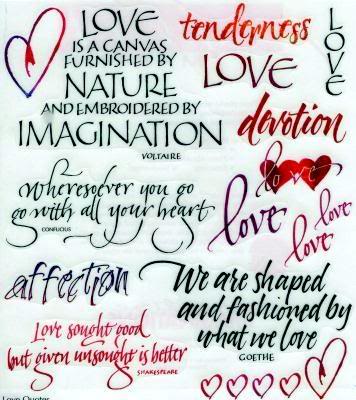 LOVE
IS A CANVAS
FURNISHED BY
NATURE
AND EMBROIDERED BY
IMAGINATION
VOLTAIRE
tenderness
LOVE
LOVE
devotion
love
love
love
love
Wheresoever you go
go with all your heart
CONFUCIUS
affection
We are shaped
and fashioned by
what we love
GOETHE
Love sought good
but given unsought is better
SHAKESPEARE
Love Quotes